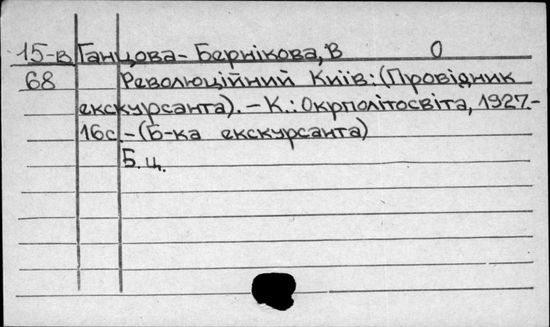 15-в Ганцова-Бернікова, В О
68 Революційний Київ: (Провідник
екскурсанта). - К.: Окрполітосвіта, 1927.-
16с. - (Б-ка екскурсанта)
Б.ц.